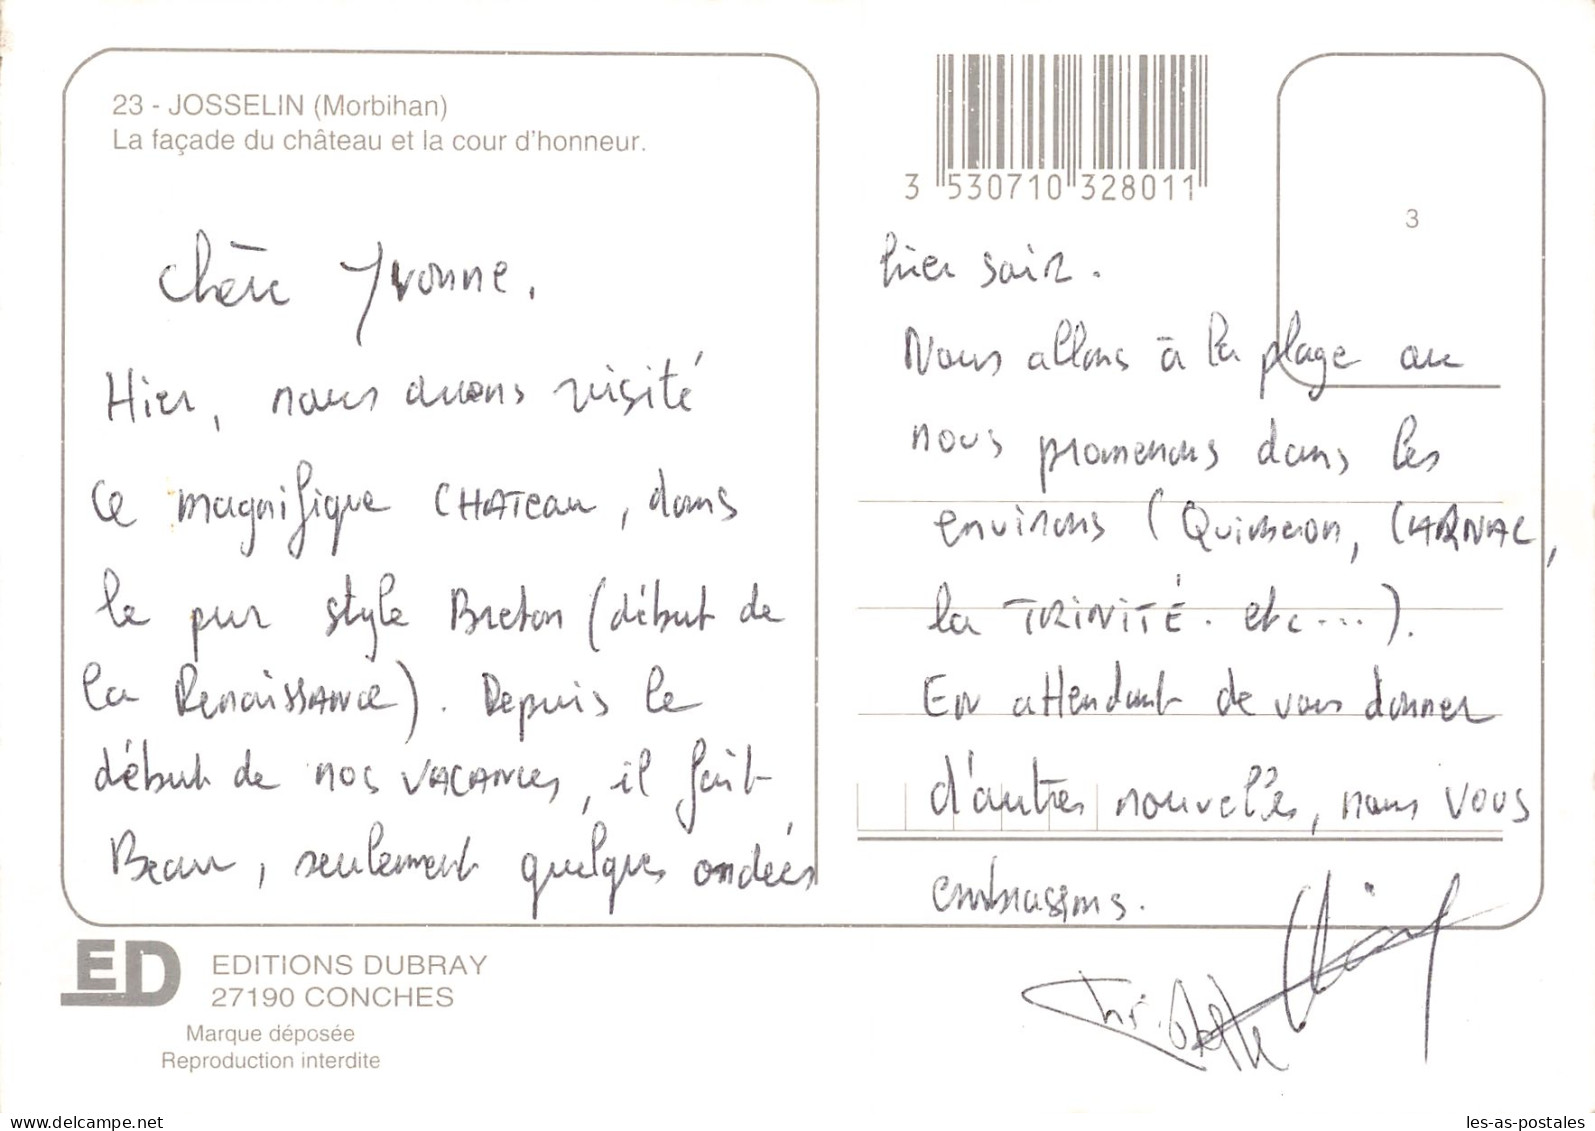 23 - JOSSELIN (Morbihan)
La façade du château et la cour d'honneur.
Chère Yvonne,
Hier, nous avons visité
ce magnifique CHATEAU, dans
le pur style Breton (début de
la Renaissance). Depuis le
début de nos VACANCES, il fait
Beau, seulement quelques ondées
3 530710 328011
3
hier soir.
Nous allons à la plage ou
nous promenons dans les
environs (Quiberon, CARNAC,
la TRINITÉ. etc....).
En attendant de vous donner
d'autres nouvelles, nous vous
embrassons.
ED
EDITIONS DUBRAY
27190 CONCHES
Marque déposée
Reproduction interdite
Delcampe.net
les-as-postales